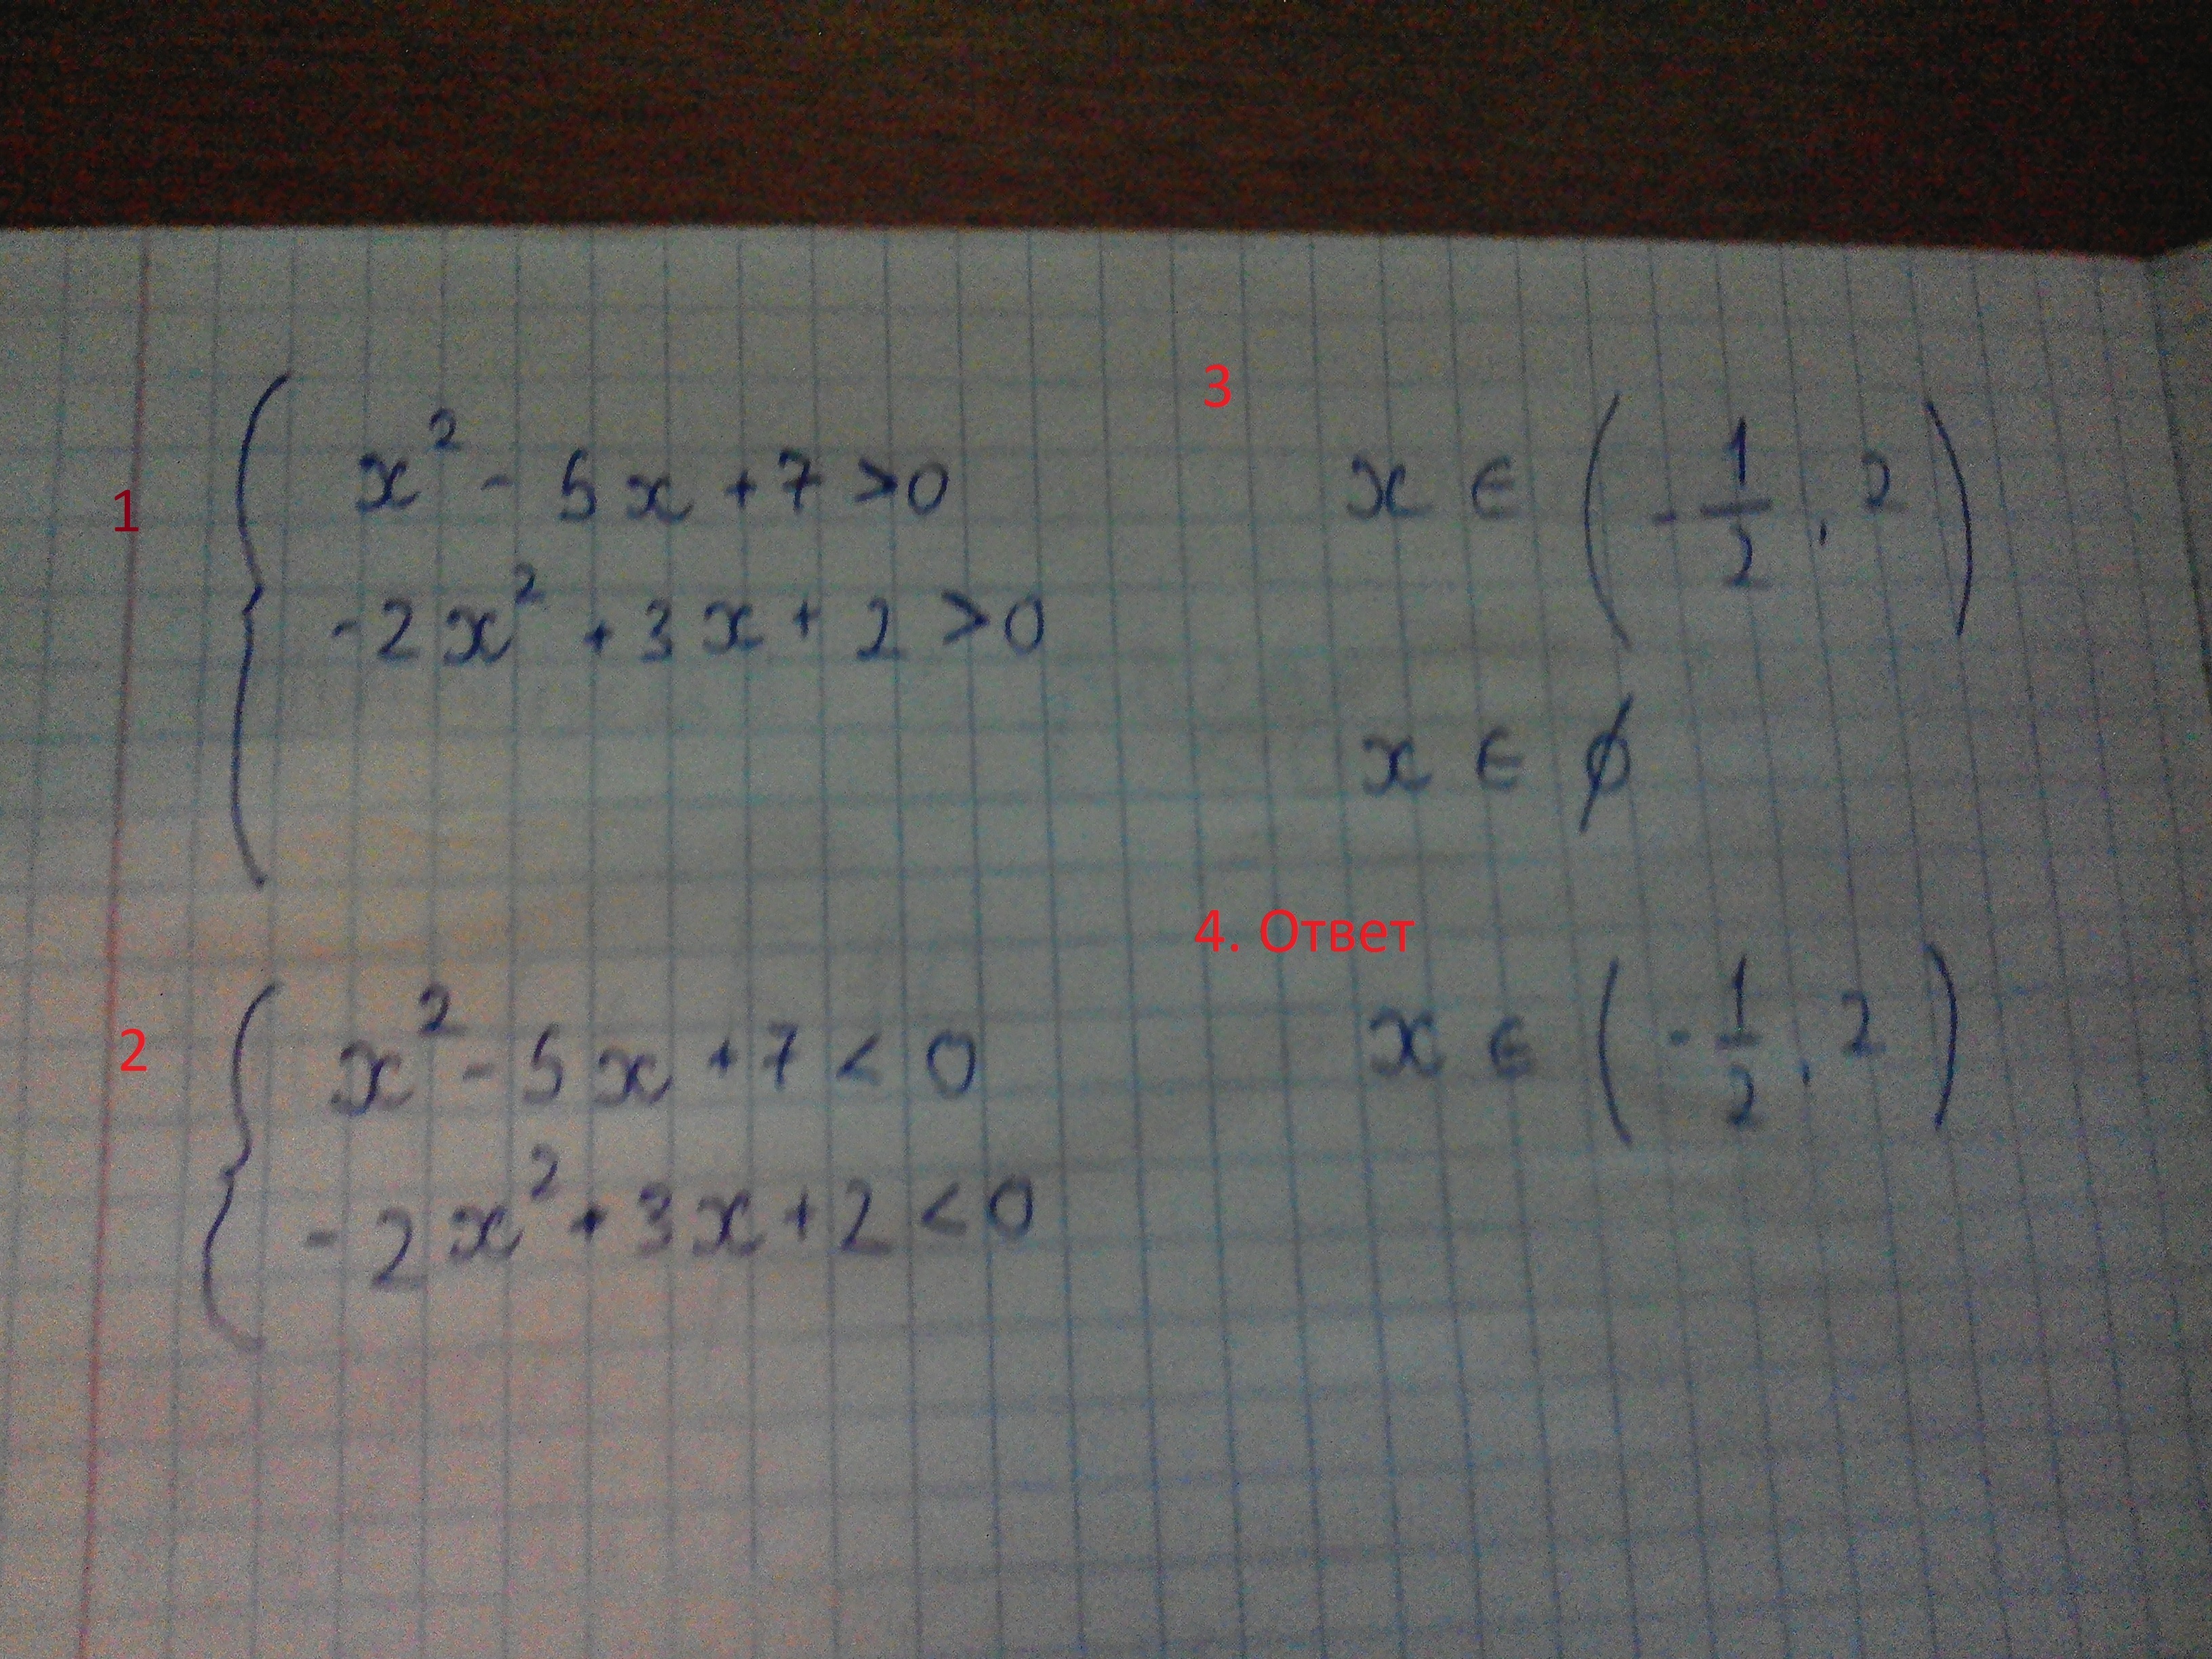 1
x² - 5x + 7 > 0
-2x² + 3x + 2 > 0
2
x² - 5x + 7 < 0
-2x² + 3x + 2 < 0
3
x ∈ (-1/2, 2)
x ∈ ∅
4. Ответ
x ∈ (-1/2, 2)